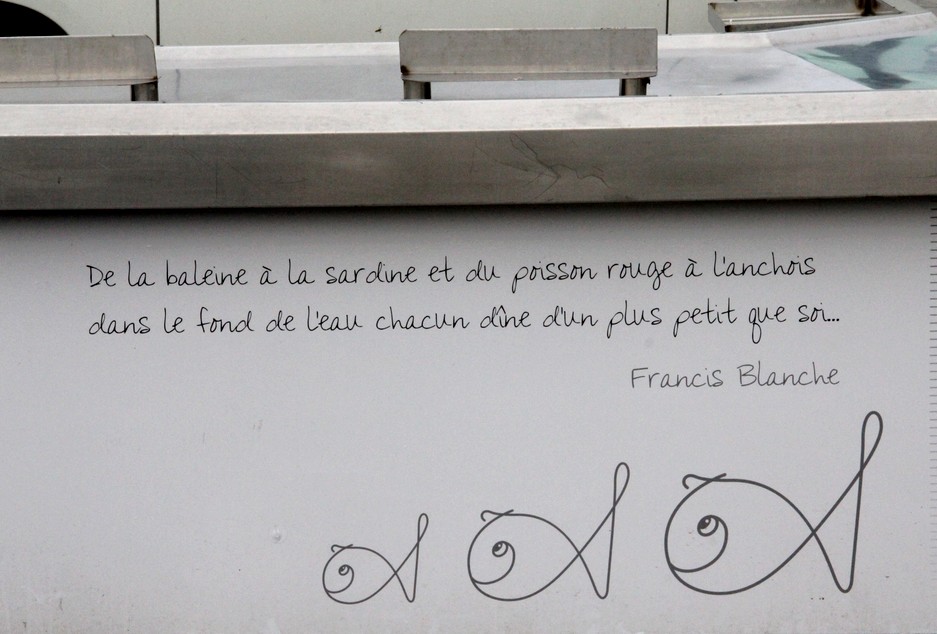 De la baleine à la sardine et du poisson rouge à l'anchois
dans le fond de l'eau chacun dîne d'un plus petit que soi...
Francis Blanche